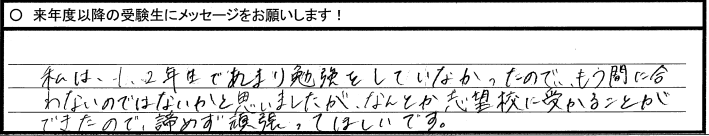 ○ 来年度以降の受験生にメッセージをお願いします！
私は、1、2年生であまり勉強をしていなかったので、もう間に合
わないのではないかと思いましたが、なんとか志望校に受かることが
できたので、諦めず頑張ってほしいです。